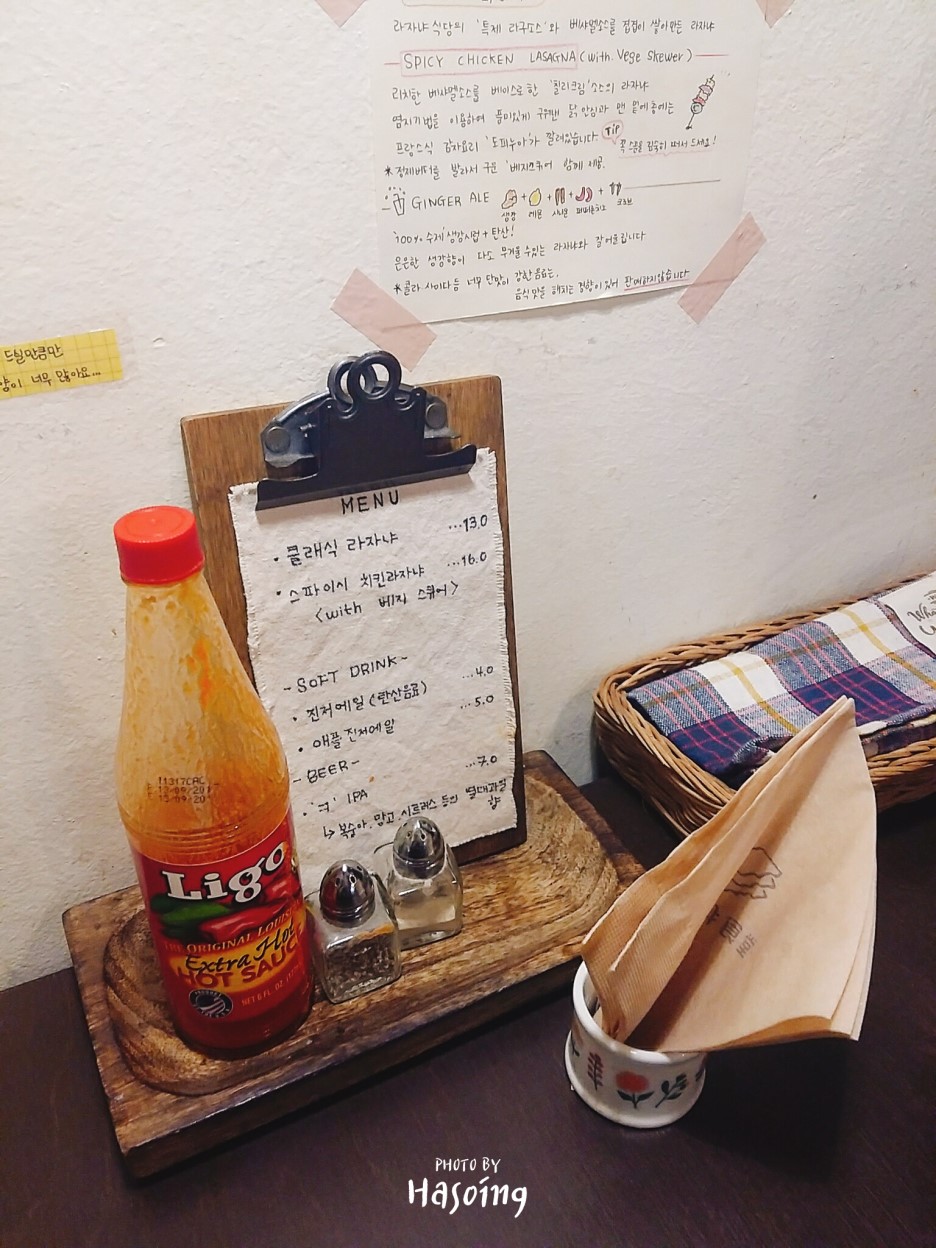 라자냐 식당의 '특제 라구소스'와 베샤멜소스를 겹겹이 쌓아만든 라자냐
SPICY CHICKEN LASAGNA (with. Vege Skewer)
리치한 베샤멜소스를 베이스로한 '칠리크림'소스의 라자냐
염지기법을 이용하여 풍미있게 구워낸 닭 안심과 맨 밑에층에는
프랑스식 감자요리 '도피누아'가 깔려있습니다.
Tip
꼭 스푼을 깊숙히 떠서 드세요!
*정제버터를 발라서 구운 '베지스큐어' 함께 제공.
GINGER ALE
생강 레몬 시나몬 페퍼론치노 크로브
'100% 수제'생강시럽 + 탄산!
은은한 생강향이 다소 무거울 수있는 라자냐와 잘어울립니다
*콜라 사이다 등 너무 단맛이 강한 음료는,
음식맛을 해치는 경향이 있어 판매하지않습니다
드실만큼만
양이 너무 많아요...
MENU
· 클래식 라자냐 ...13.0
· 스파이시 치킨라자냐 ...16.0
<with 베지 스큐어>
- SOFT DRINK -
· 진저에일 (탄산음료) ...4.0
· 애플 진저에일 ...5.0
- BEER -
IPA ...7.0
↳ 복숭아, 망고, 시트러스 등의 열대과일
향
11317CAC
Ligo
THE ORIGINAL LOUISIANA
Extra Hot
HOT SAUCE
NET 6 FL. OZ.
PHOTO BY
Hasoing